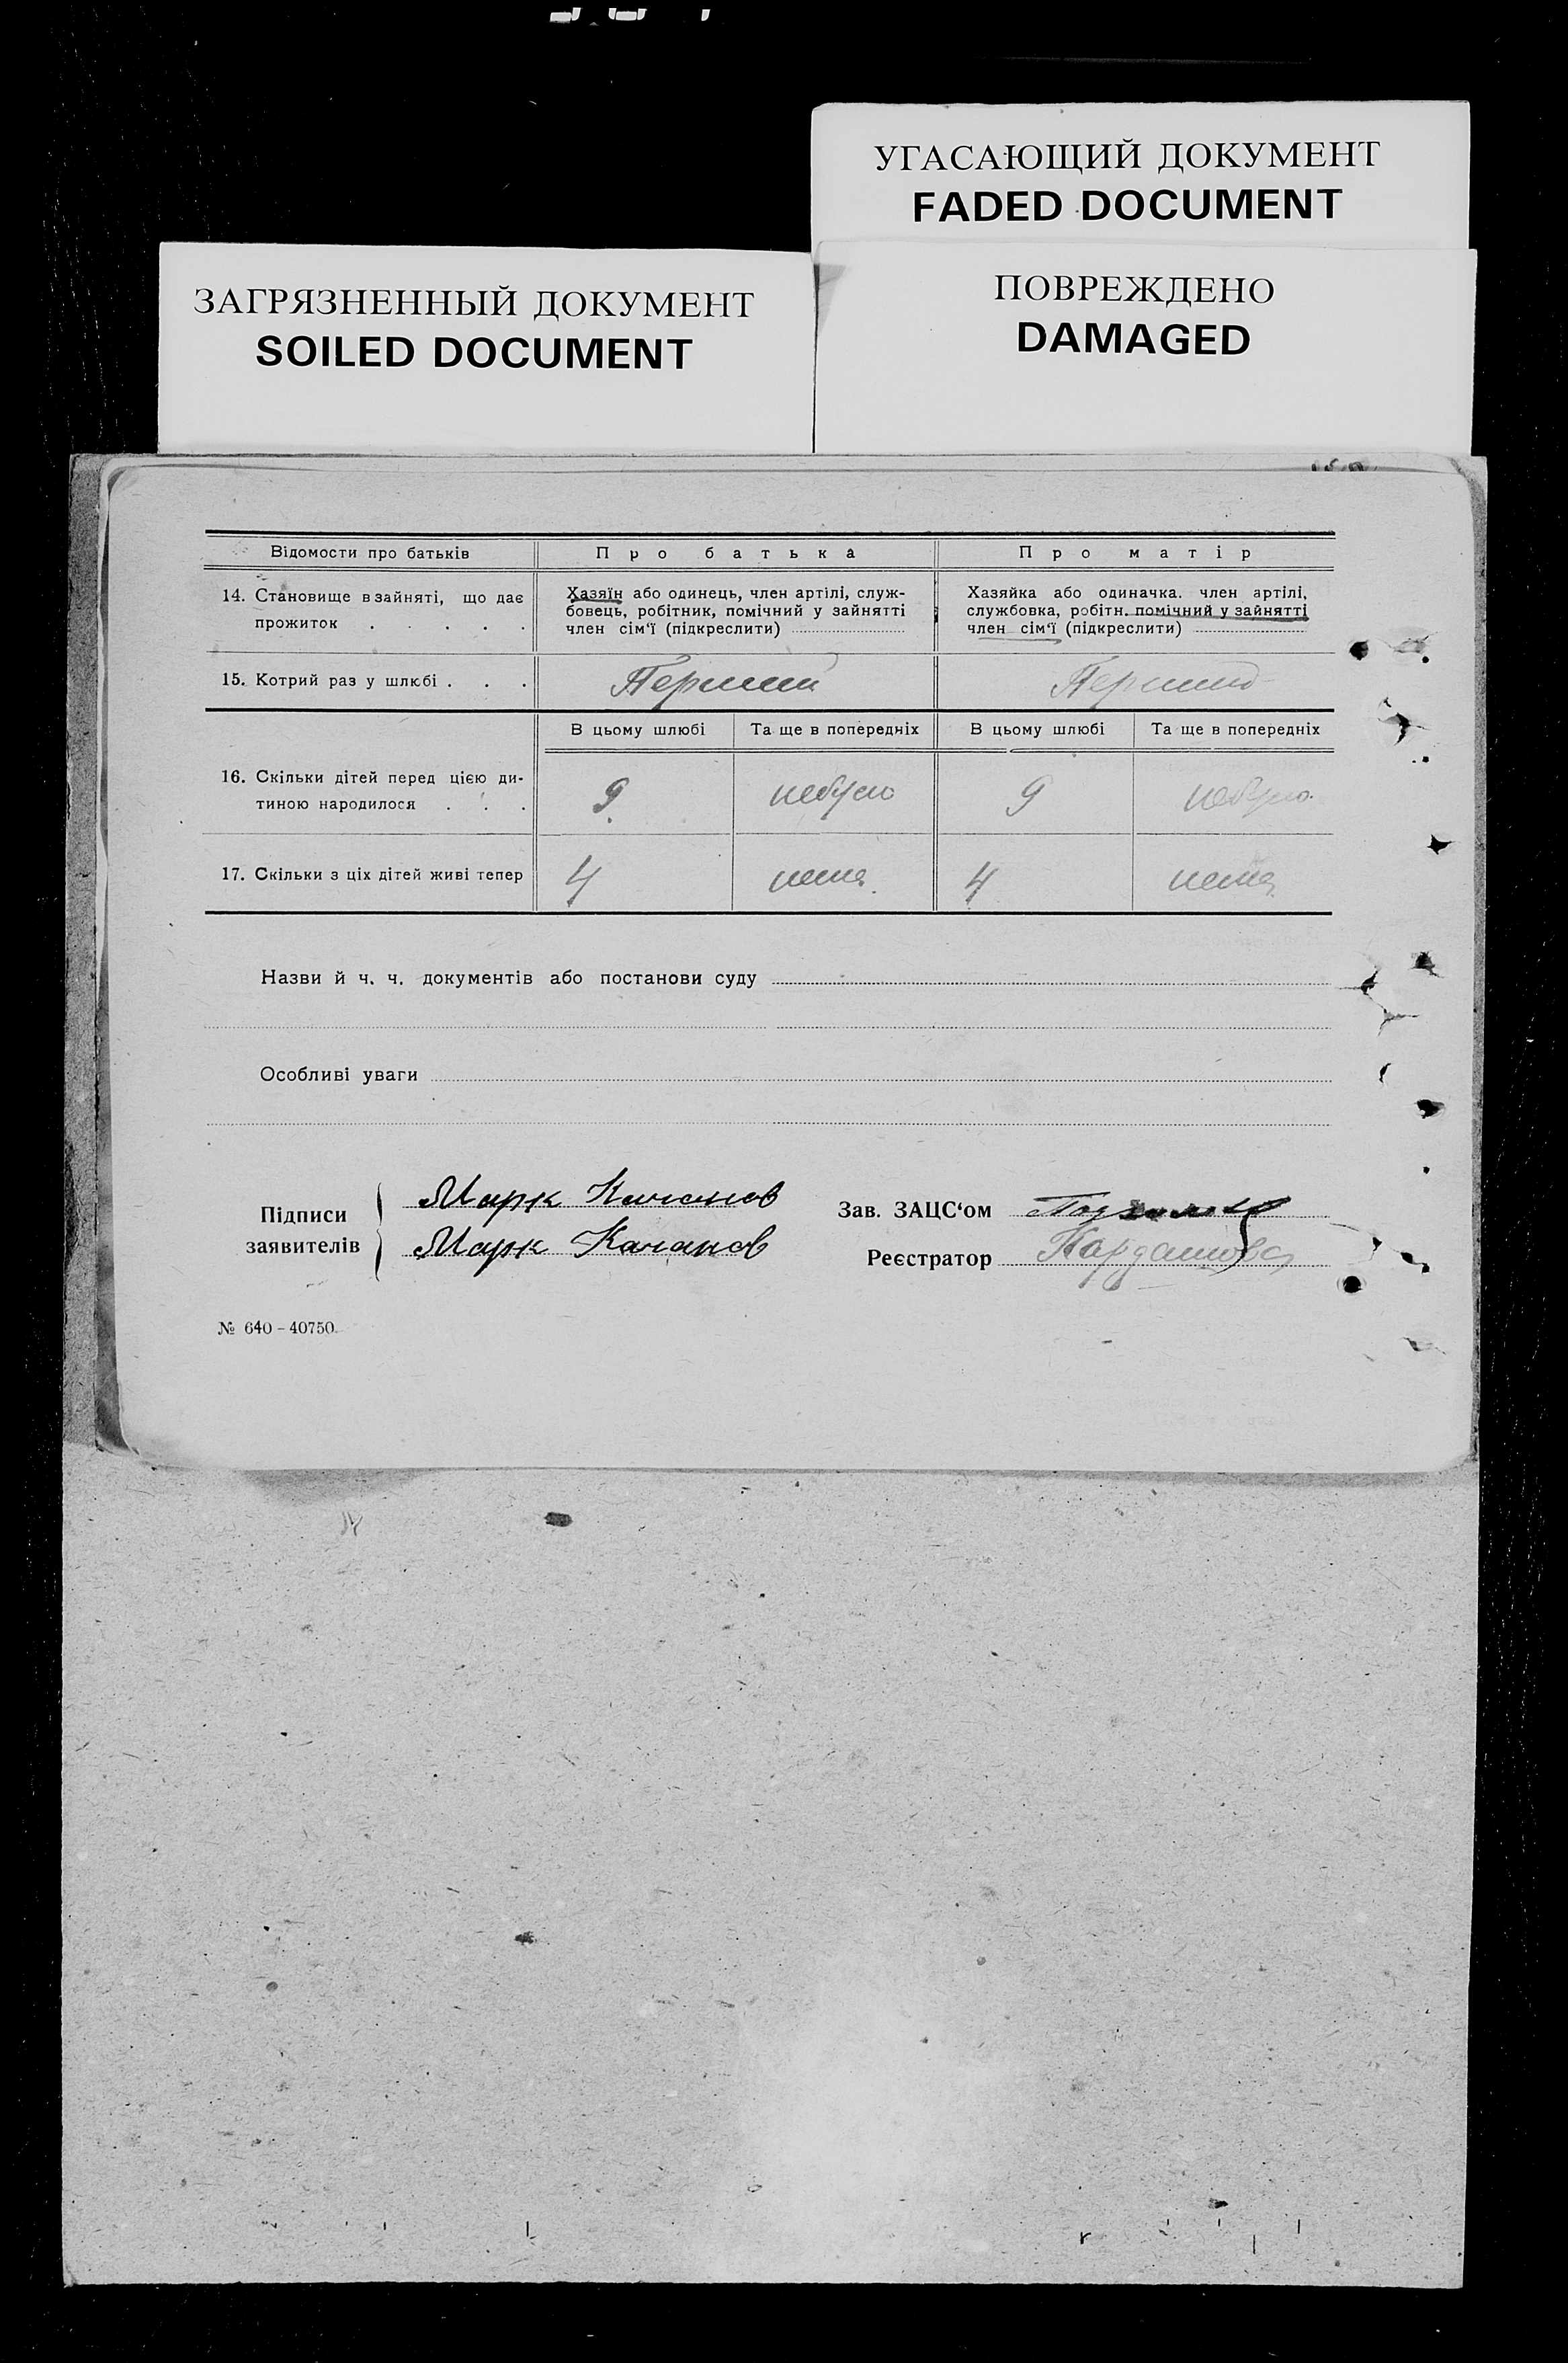 УГАСАЮЩИЙ ДОКУМЕНТ
FADED DOCUMENT
ЗАГРЯЗНЕННЫЙ ДОКУМЕНТ
SOILED DOCUMENT
ПОВРЕЖДЕНО
DAMAGED
Відомости про батьків
Про батька
Про матір
14. Становище в зайняті, що дає
прожиток . . . . .
Хазяїн або одинець, член артілі, служ-
бовець, робітник, помічний у зайнятті
член сім'ї (підкреслити)
Хазяйка або одиначка. член артілі,
службовка, робітн. помічний у зайнятті
член сім'ї (підкреслити)
15. Котрий раз у шлюбі . . .
Перший
Перший
В цьому шлюбі
Та ще в попередніх
В цьому шлюбі
Та ще в попередніх
16. Скільки дітей перед цією ди-
тиною народилося . . .
9
небуло
9
небуло
17. Скільки з ціх дітей живі тепер
4
нема
4
нема
Назви й ч. ч. документів або постанови суду
Особливі уваги
Підписи
заявителів
Марк Качанов
Марк Качанов
Зав. ЗАЦС'ом
Реєстратор
Кардашова
№ 640 – 40750.